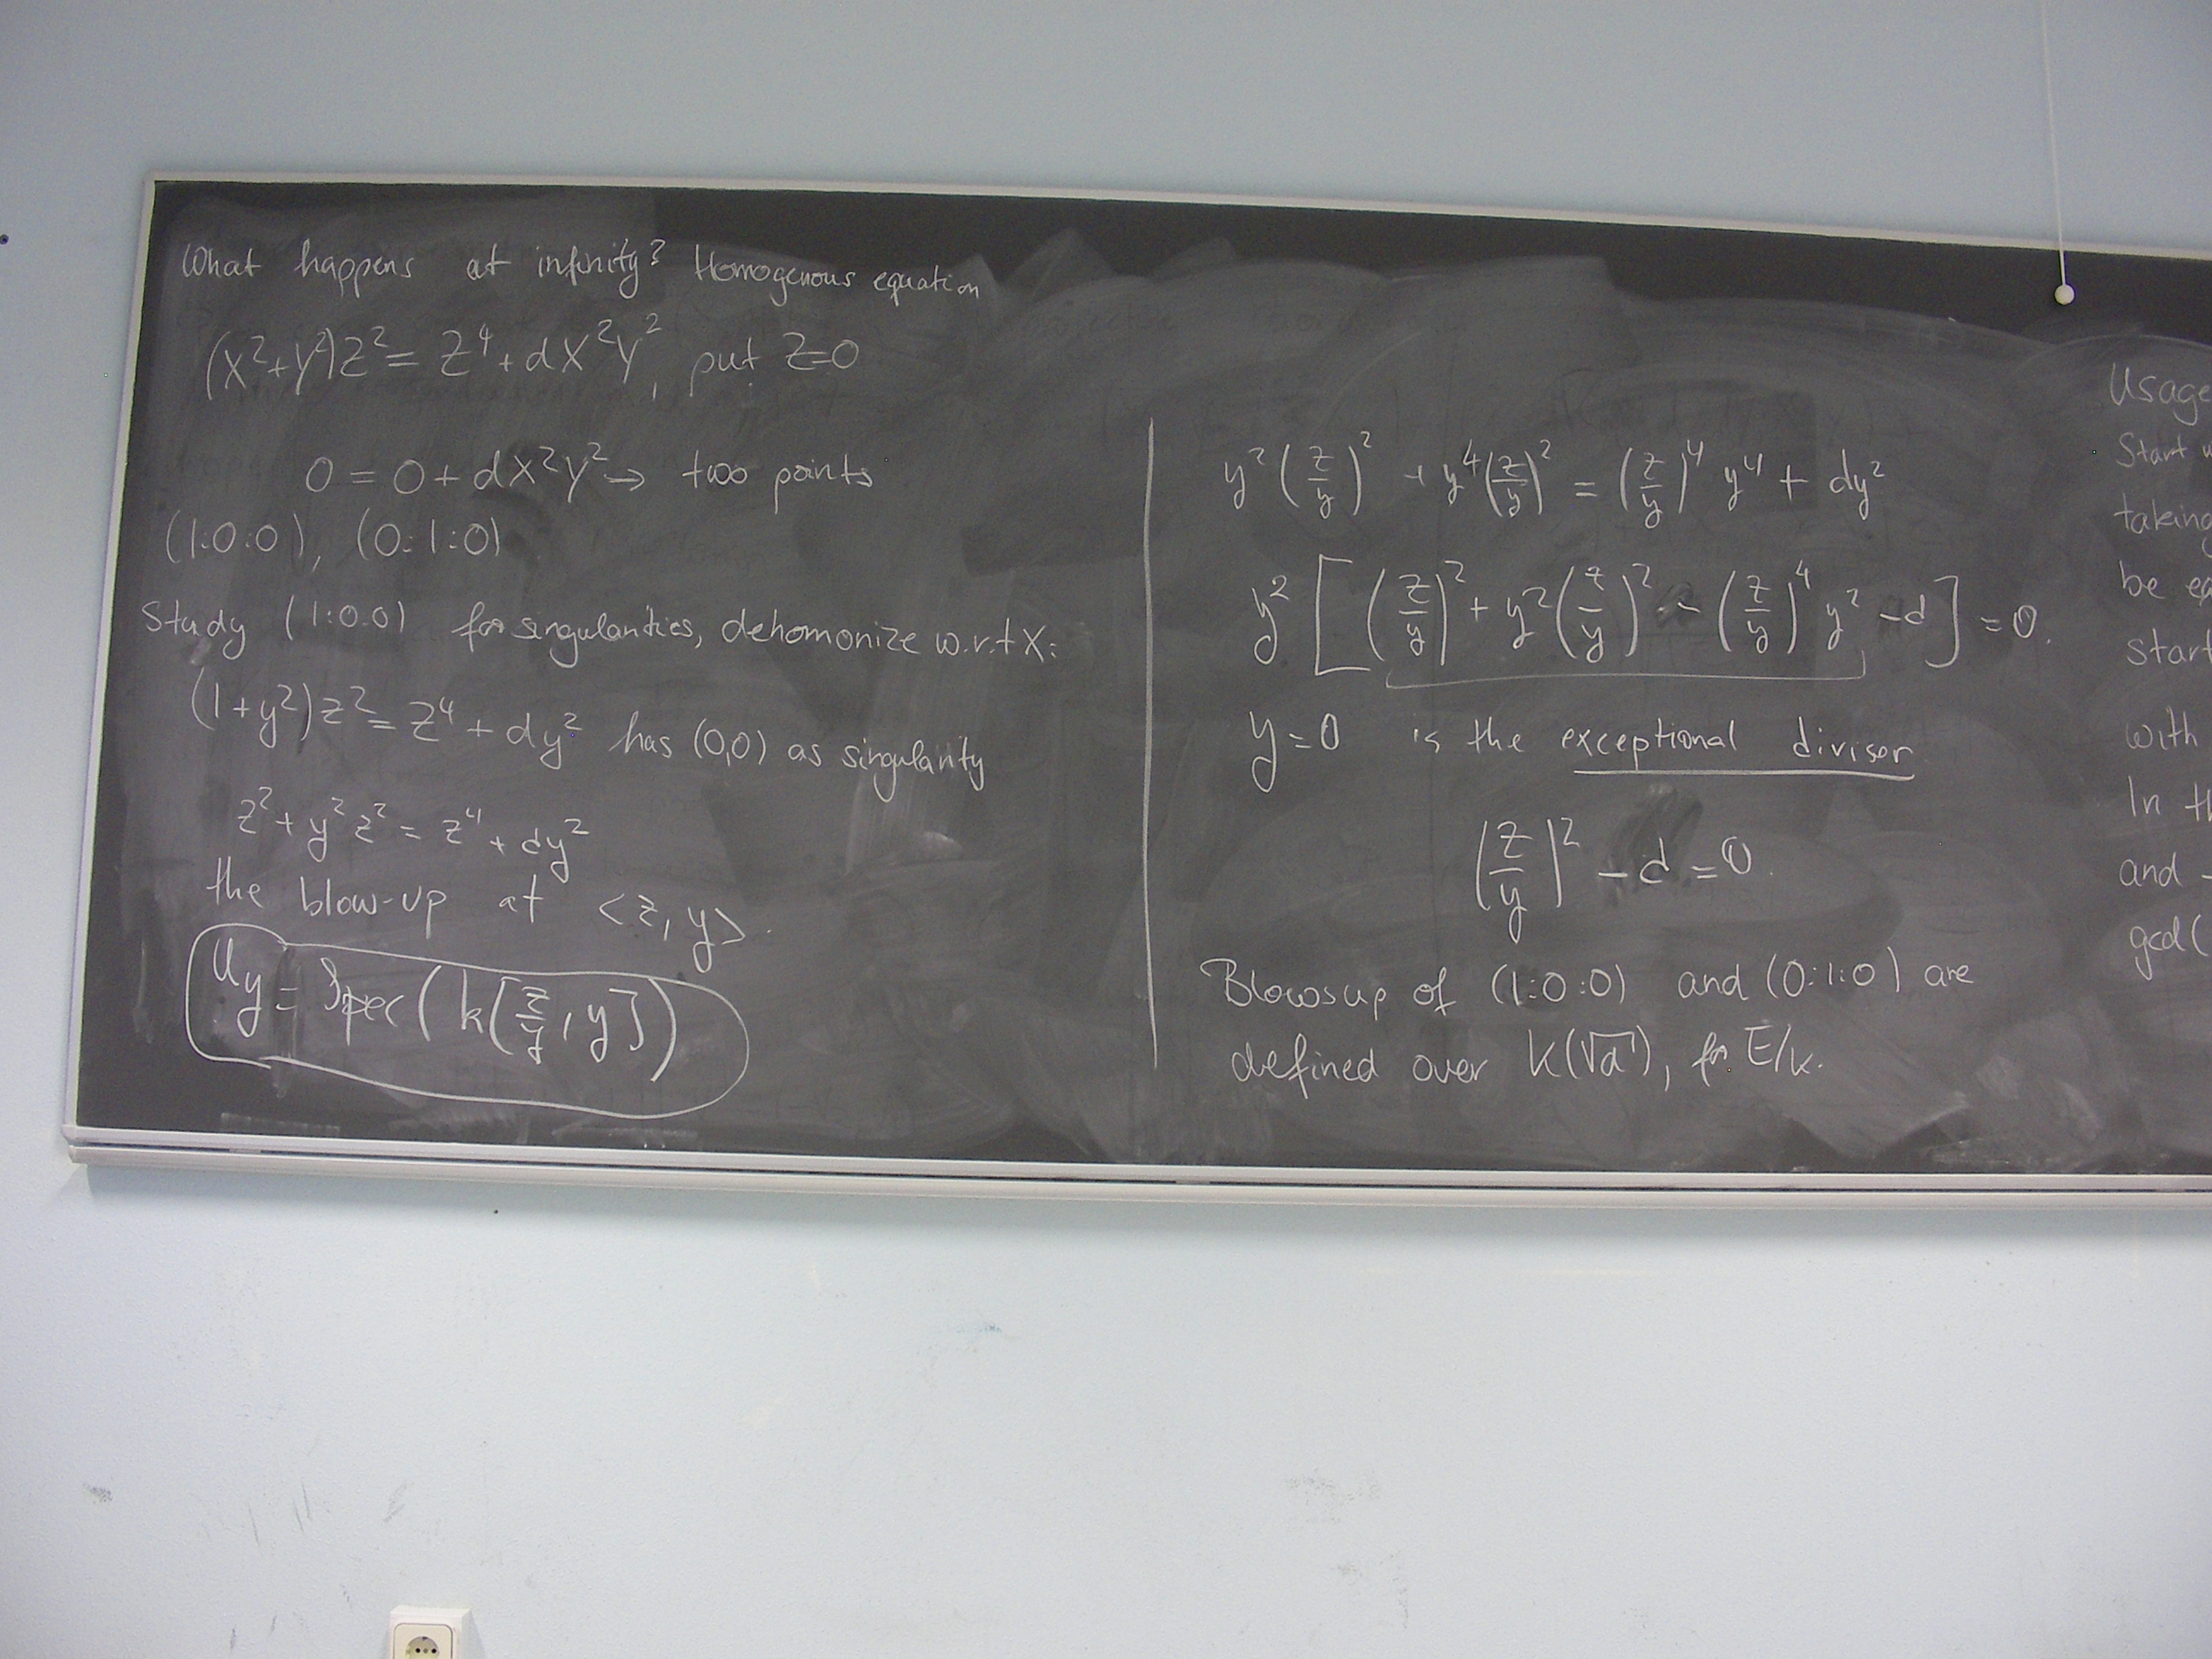 What happens at infinity? Homogenous equation
(X²+Y²)Z² = Z⁴ + dX²Y², put Z=0
0 = 0 + dX²Y² → two points
(1:0:0), (0:1:0)
Study (1:0:0) for singularities, dehomonize w.r.t X:
(1+y²)z² = z⁴ + dy² has (0,0) as singularity
z² + y²z² = z⁴ + dy²
the blow-up at <z, y>.
Uy = Spec(k[z/y, y])
y²(z/y)² + y⁴(z/y)² = (z/y)⁴ y⁴ + dy²
y² [(z/y)² + y²(z/y)² - (z/y)⁴ y² - d] = 0.
y=0 is the exceptional divisor
(z/y)² - d = 0.
Blowsup of (1:0:0) and (0:1:0) are
defined over k(√d), for E/k.
Usage
Start
taking
be
start
with
In
and
gcd(